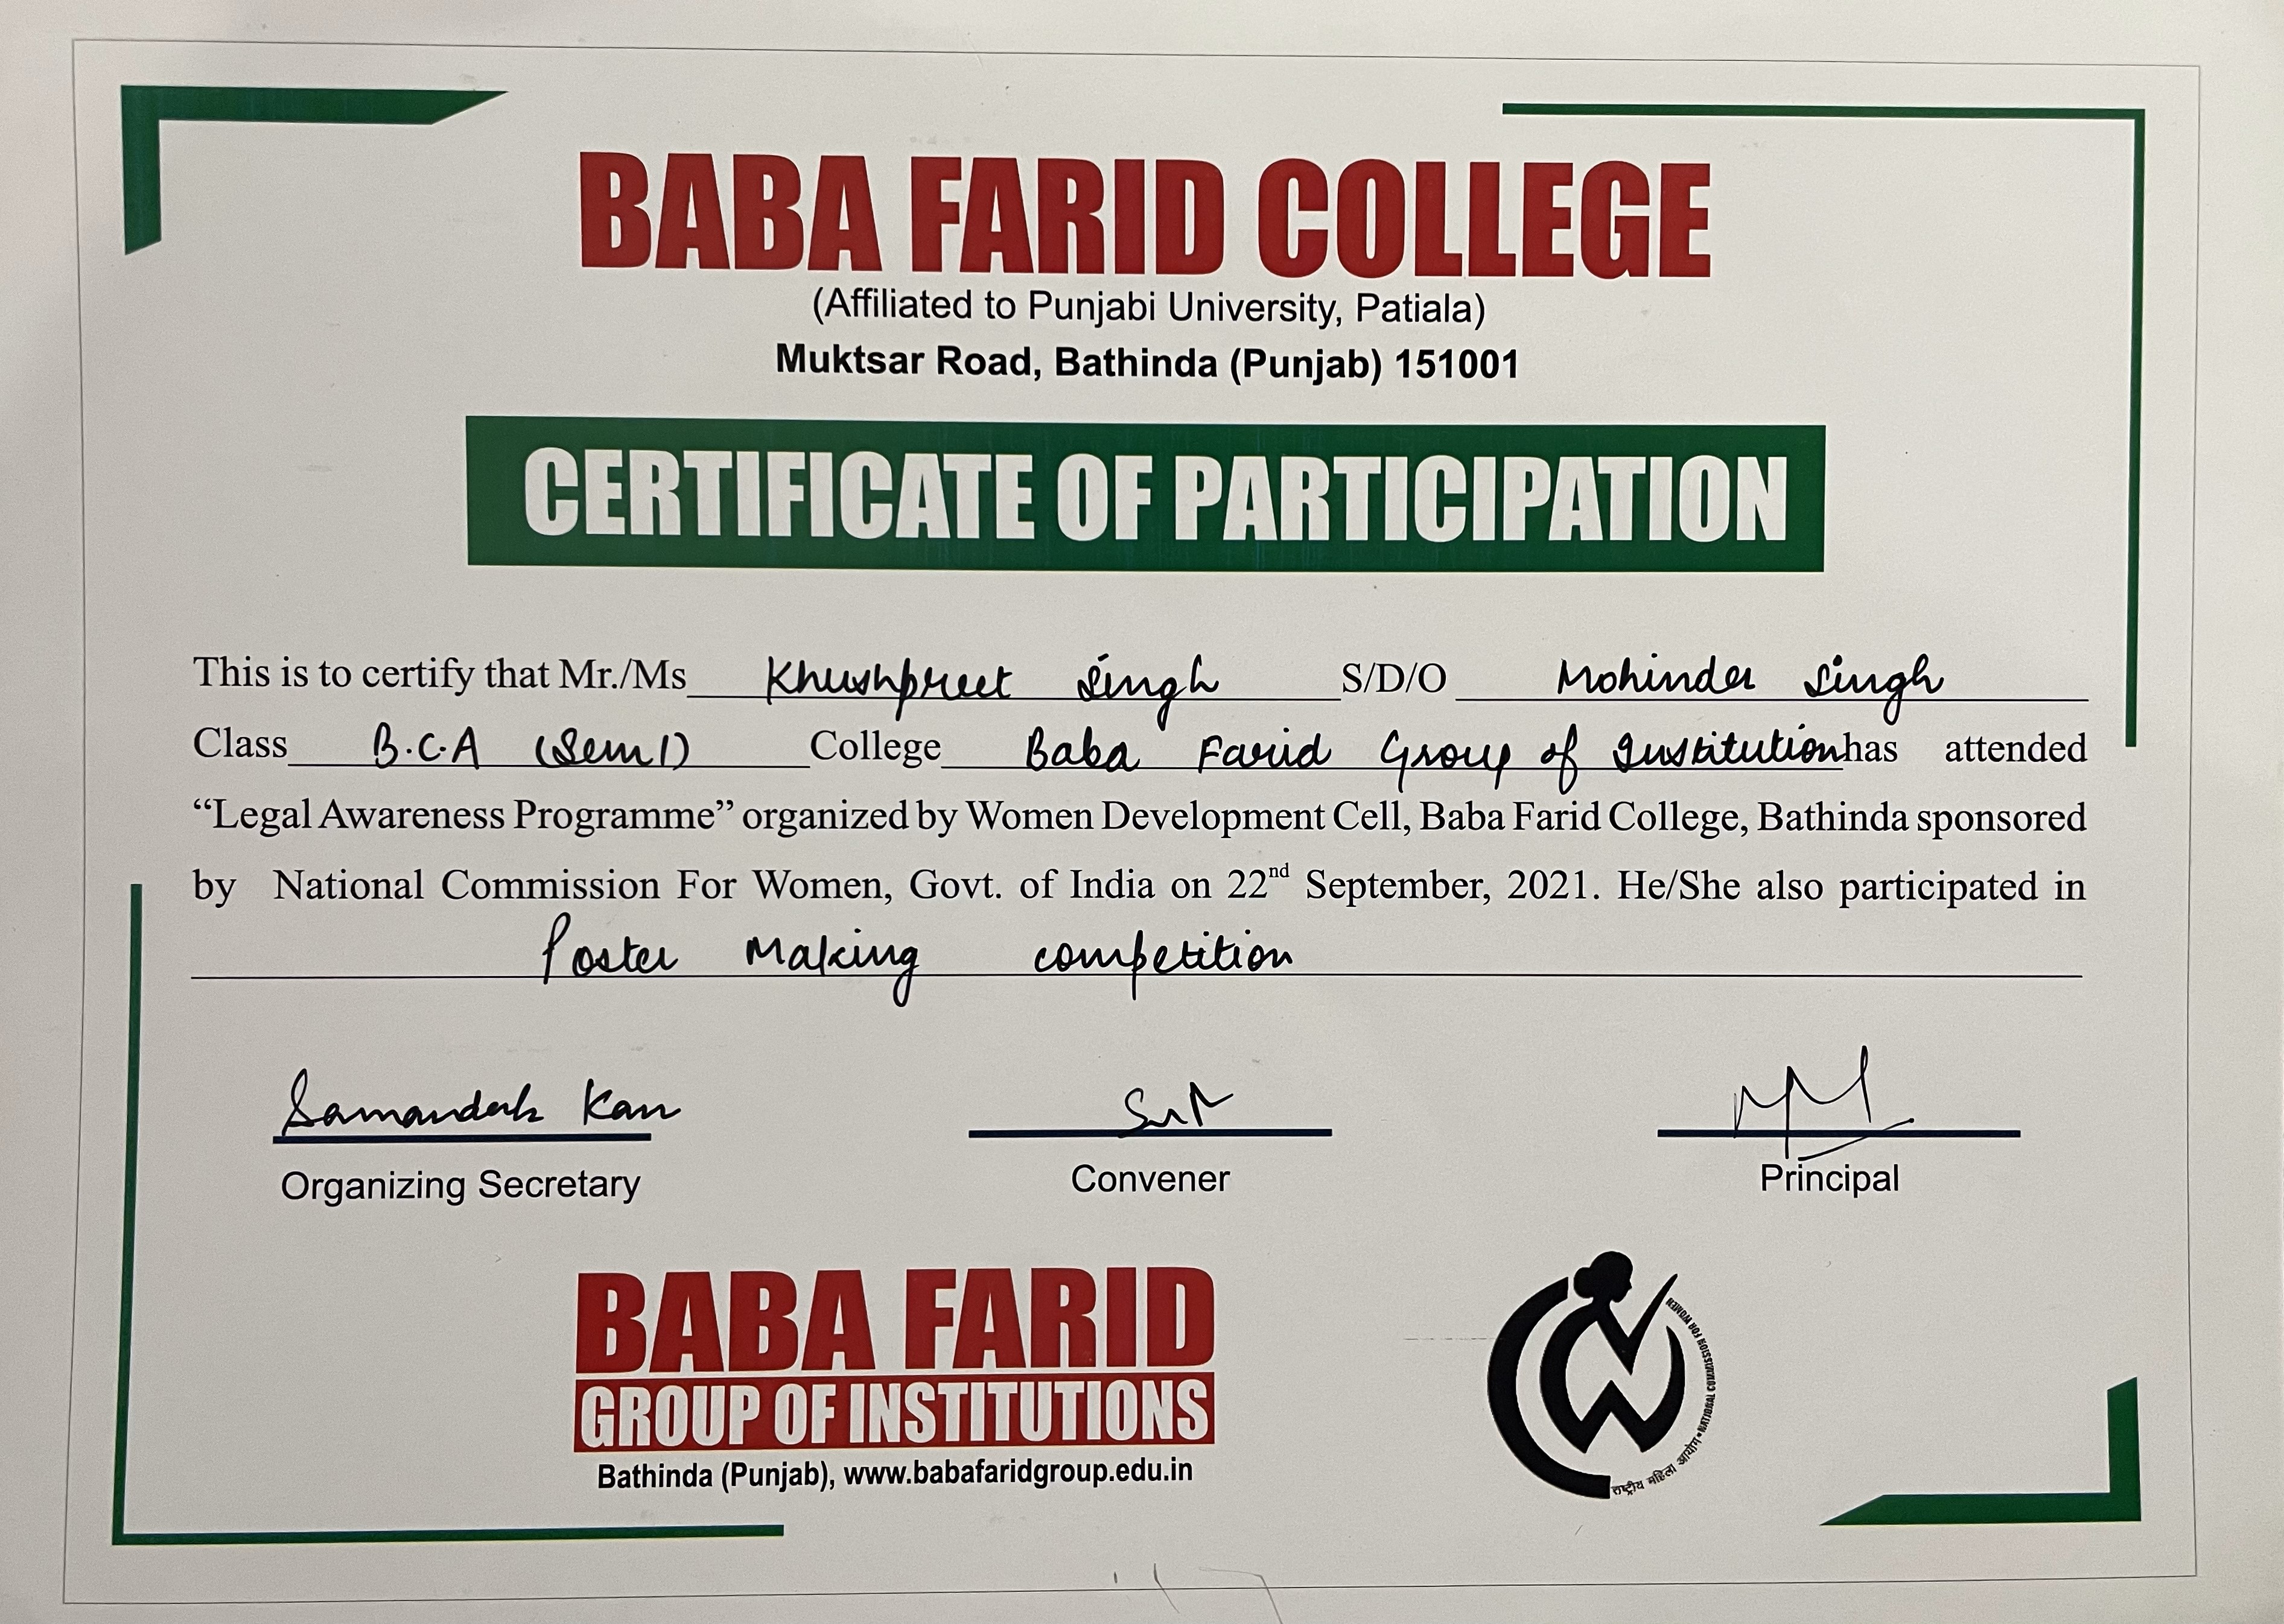 BABA FARID COLLEGE
(Affiliated to Punjabi University, Patiala)
Muktsar Road, Bathinda (Punjab) 151001
CERTIFICATE OF PARTICIPATION
This is to certify that Mr./Ms Khushpreet Singh S/D/O Mohinder Singh
Class B.C.A (Sem 1) College Baba Farid Group of Institution has attended
“Legal Awareness Programme” organized by Women Development Cell, Baba Farid College, Bathinda sponsored
by National Commission For Women, Govt. of India on 22nd September, 2021. He/She also participated in
Poster Making competition
Organizing Secretary
Convener
Principal
BABA FARID
GROUP OF INSTITUTIONS
Bathinda (Punjab), www.babafaridgroup.edu.in
राष्ट्रीय महिला आयोग • NATIONAL COMMISSION FOR WOMEN